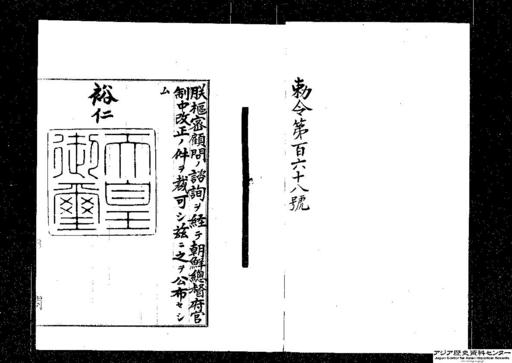 勅令第百六十八號
朕樞密顧問ノ諮詢ヲ経テ朝鮮總督府官
制中改正ノ件ヲ裁可シ茲ニ之ヲ公布セシ
ム
裕仁
天皇
御璽
アジア歴史資料センター
Japan Center for Asian Historical Records